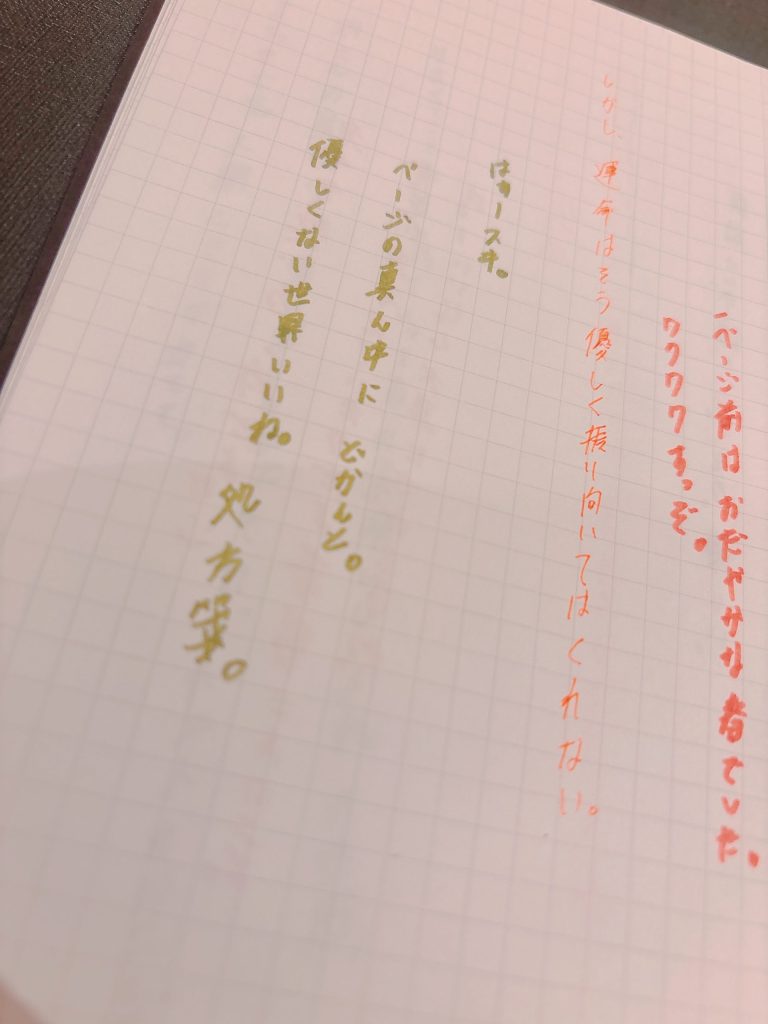 一ページ前はおだやかな者でした。
ワクワクすっぞ。
しかし、運命はそう優しく振り向いてはくれない。
はぁースキ。
ページの真ん中に どかんと。
優しくない世界いいね。 処方箋。